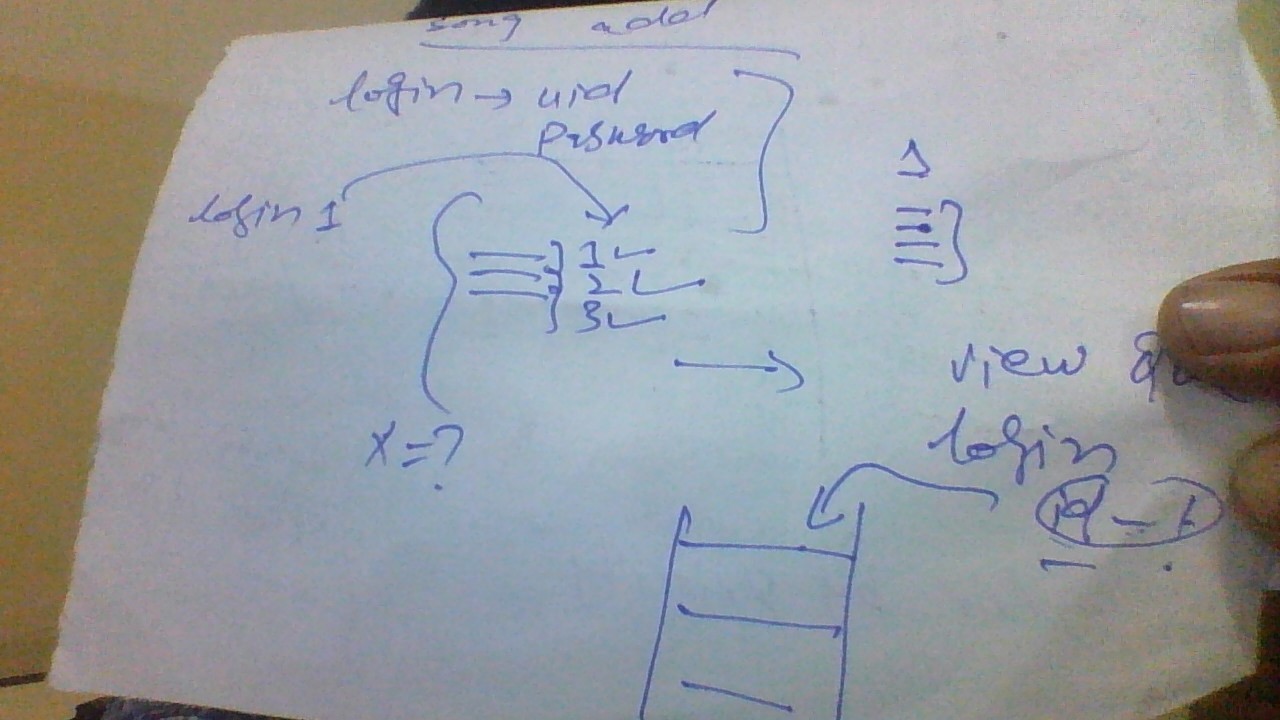 song add
login → uid
password
login 1
1
1
2
3
view
login
x=?
id - 1